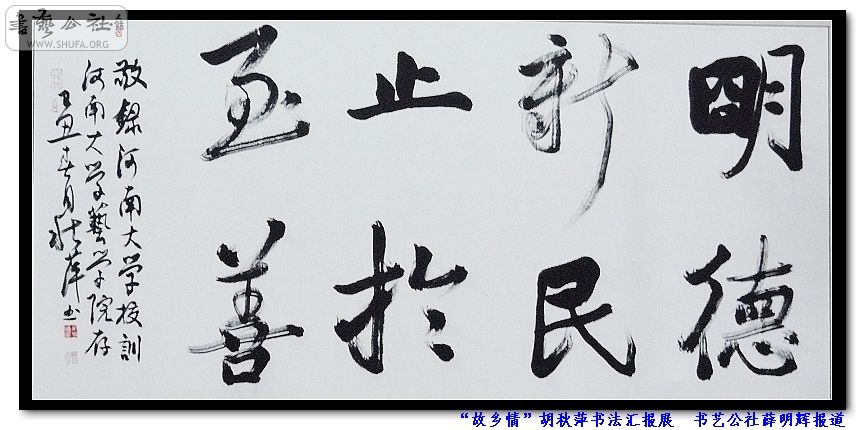 明德
新民
止於
至善
敬録河南大学校訓
河南大学藝学院存
己丑春月秋萍书
書藝公社
WWW.SHUFA.ORG
“故乡情”胡秋萍书法汇报展　书艺公社薛明辉报道